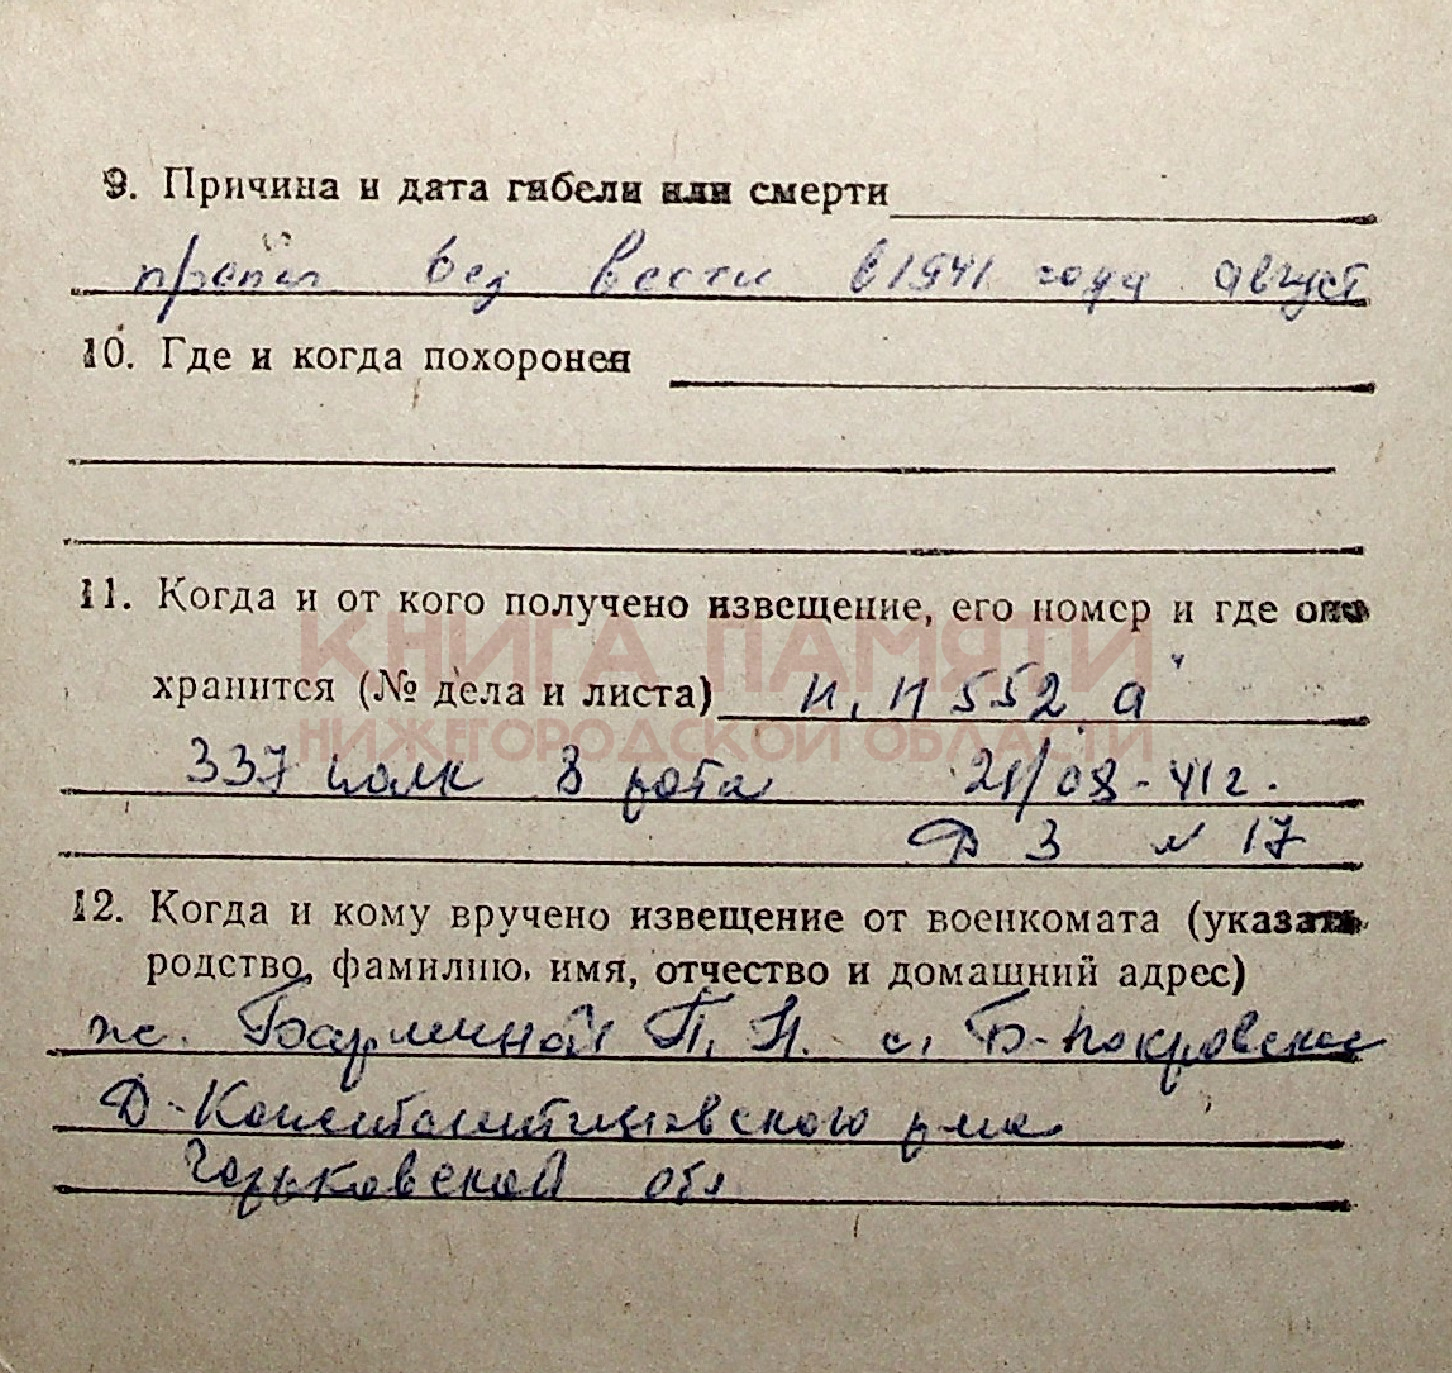 9. Причина и дата гибели или смерти
пропал без вести в 1941 года август
10. Где и когда похоронен
11. Когда и от кого получено извещение, его номер и где оно
КНИГА ПАМЯТИ
хранится (№ дела и листа) п, п 552 а
НИЖЕГОРОДСКОЙ ОБЛАСТИ
337 полк 8 рота 21/08-41г.
Ф 3 N 17
12. Когда и кому вручено извещение от военкомата (указать
родство, фамилию, имя, отчество и домашний адрес)
ж. Барминой П. Н. с. Б-Покровское
Д-Константиновского р-на
Горьковской обл